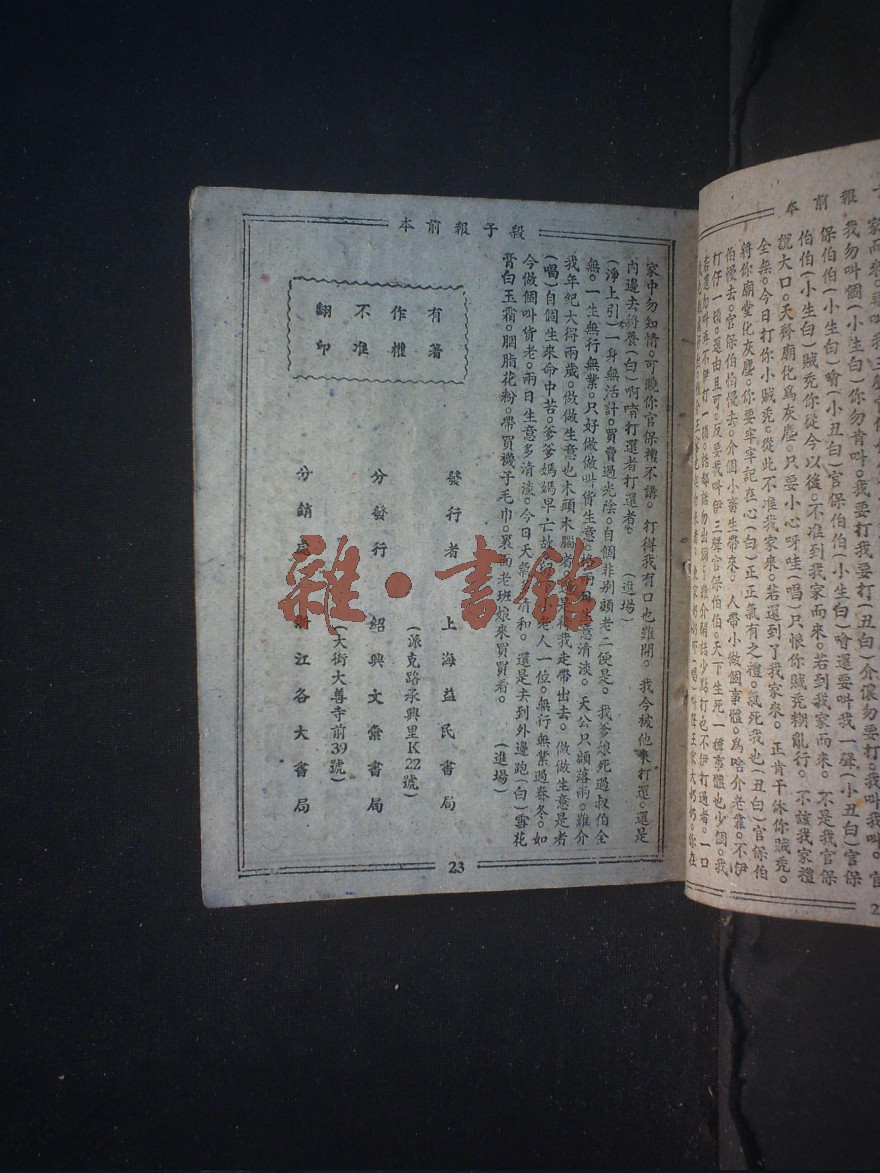 殺子報前本
家中勿知情。可曉你官保禮不講。打得我有口也難開。我今被他來打還。還是
內邊去將養(白)啊唷打還者打還者。(進場)
(淨上引)一身無活計。買賣過光陰。自個非別顧老二便是。我爹娘死過叔伯全
無。一生無行無業。只好做做叫貨生意。意清淡。天公只顧落雨。難介
我年紀大得兩歲。做做生意也木頭木腦者。我走帶出去。做做生意是者
(唱)自個生來命中苦。爹爹媽媽早亡故。人一位。無行無業過春冬。如
今做個叫貨老。兩日生意多清淡。今日天氣清和。還是去到外邊跑(白)雪花
膏白玉霜。胭脂花粉。帶買襪子毛巾。裏面老班娘來買買看。(進場)
有著
作權
不准
翻印
發行者 上海益民書局
(派克路承興里K22號)
分發行 紹興文彙書局
(大街大善寺前39號)
分銷處 浙江各大書局
23
雜·書館
報前本
我勿叫個(小生白)你勿肯叫。我要打我要打(丑白)介儂勿要打。我叫我叫。官
保伯伯(小生白)噲(小丑白)官保伯伯(小生白)噲還要叫我一聲(小丑白)官保
伯伯(小生白)賊禿你從今以後。不准到我家而來。若到我家而來。不是我官保
說大口。天齊廟化爲灰塵。只要小心呀哇(唱)只恨你賊禿糊亂行。不該我家禮
全無。今日打你小賊禿。從此不准我家來。若還到了我家來。正肯干休你賊禿。
將你廟堂化灰塵。你要牢牢記在心(白)正正氣有之禮。氣死我也(丑白)官保伯
伯慢去。官保伯伯慢去。介個小畜生帶來。人帶小做個事體。爲啥介老靠。不伊
打仔一頓。還由且可。反要我叫伊三聲官保伯伯。天下生死一種事體也少個。我